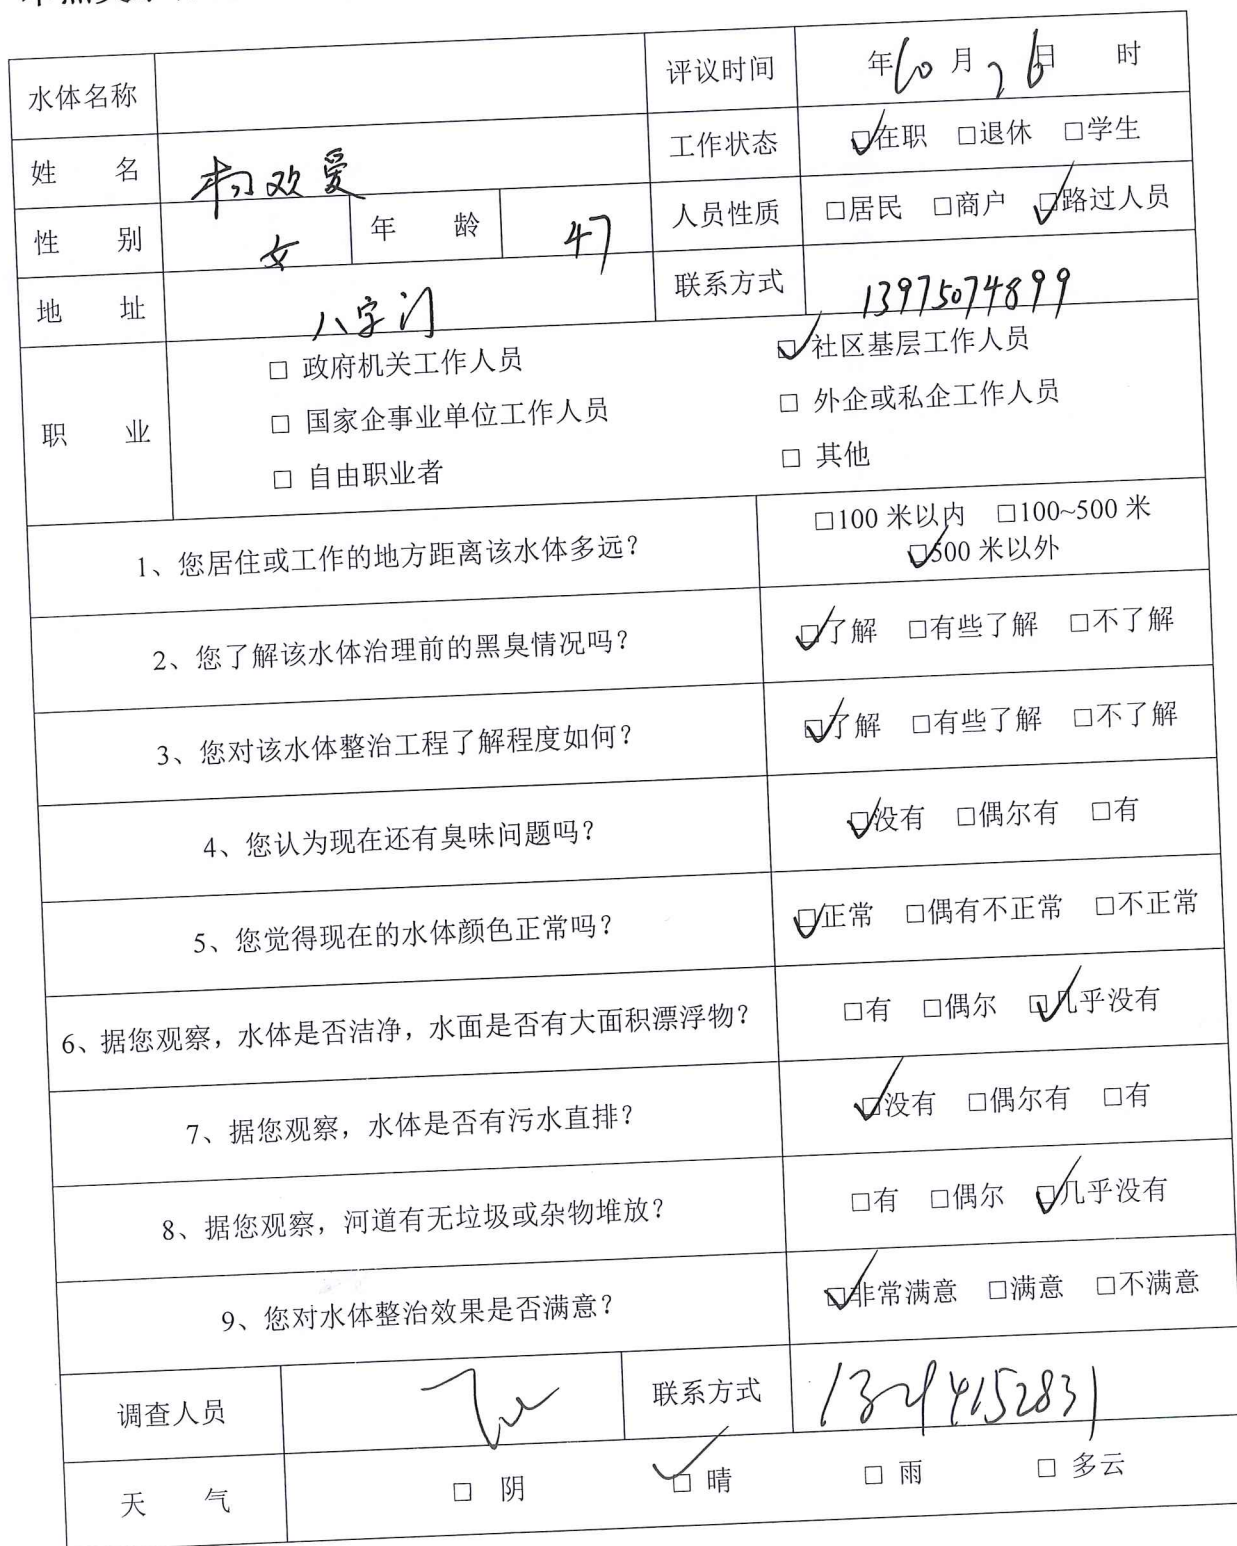 水体名称 评议时间 年10月26日 时
姓 名 杨欢爱 工作状态 ☑在职 □退休 □学生
性 别 女 年 龄 47 人员性质 □居民 □商户 ☑路过人员
地 址 八字门 联系方式 13975074899
职 业 □ 政府机关工作人员 ☑ 社区基层工作人员
□ 国家企事业单位工作人员 □ 外企或私企工作人员
□ 自由职业者 □ 其他
1、您居住或工作的地方距离该水体多远？ □100 米以内 □100~500 米
☑500 米以外
2、您了解该水体治理前的黑臭情况吗？ ☑了解 □有些了解 □不了解
3、您对该水体整治工程了解程度如何？ ☑了解 □有些了解 □不了解
4、您认为现在还有臭味问题吗？ ☑没有 □偶尔有 □有
5、您觉得现在的水体颜色正常吗？ ☑正常 □偶有不正常 □不正常
6、据您观察，水体是否洁净，水面是否有大面积漂浮物？ □有 □偶尔 ☑几乎没有
7、据您观察，水体是否有污水直排？ ☑没有 □偶尔有 □有
8、据您观察，河道有无垃圾或杂物堆放？ □有 □偶尔 ☑几乎没有
9、您对水体整治效果是否满意？ ☑非常满意 □满意 □不满意
调查人员 联系方式
天 气 □ 阴 ☑ 晴 □ 雨 □ 多云